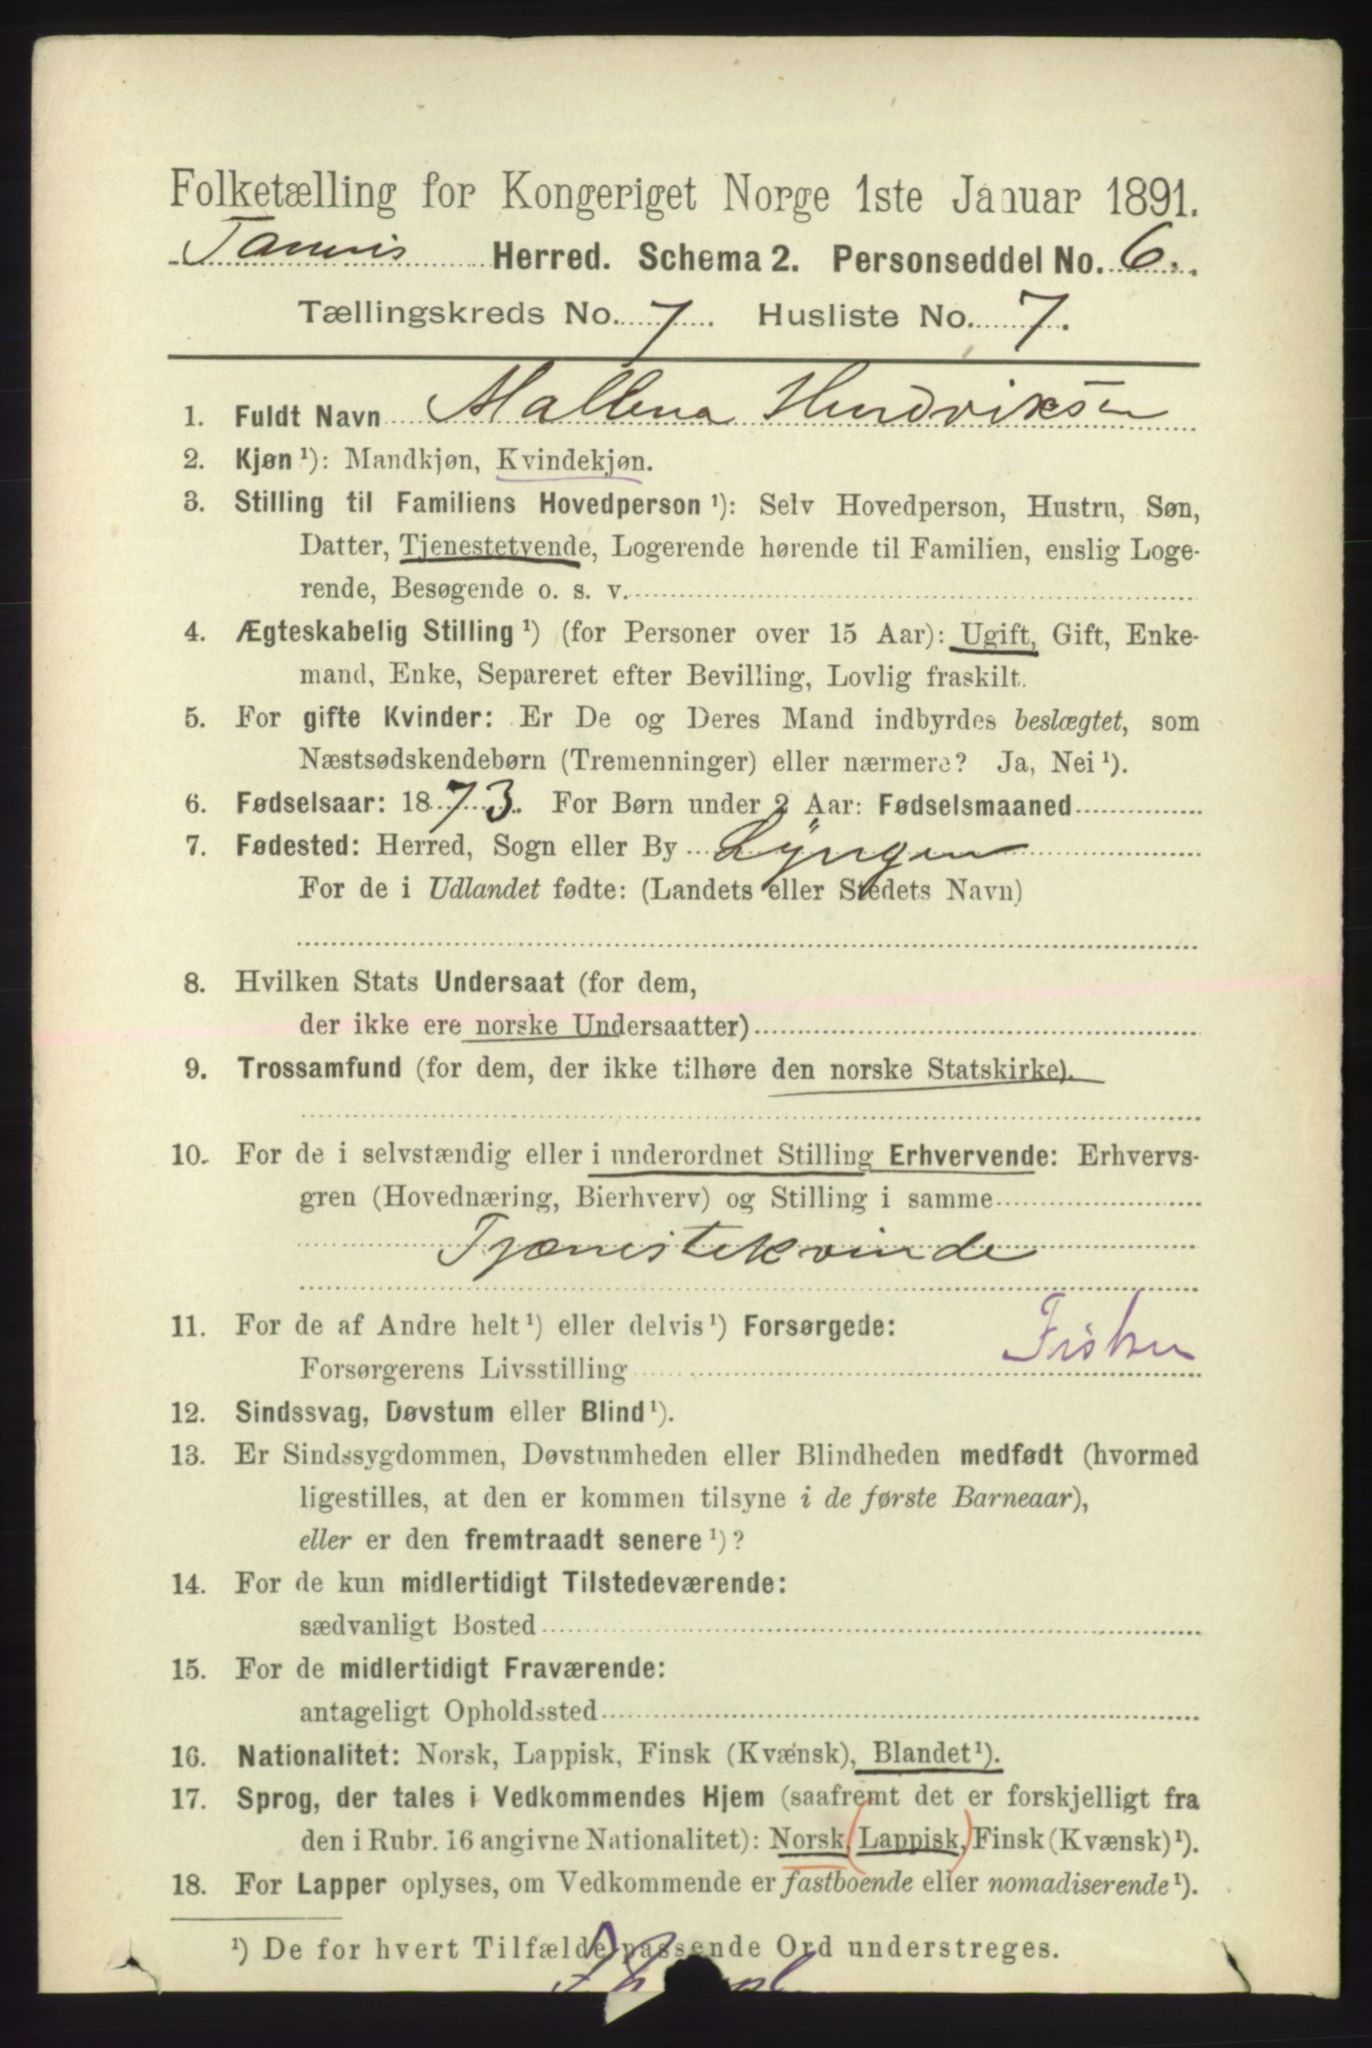 Folketælling for Kongeriget Norge 1ste Januar 1891.
Herred. Schema 2. Personseddel No. 6.
Tællingskreds No. 7. Husliste No. 7.
1. Fuldt Navn Mallena Hendriksen
2. Kjøn ¹): Mandkjøn, Kvindekjøn.
3. Stilling til Familiens Hovedperson ¹): Selv Hovedperson, Hustru, Søn,
Datter, Tjenestetyende, Logerende hørende til Familien, enslig Loge-
rende, Besøgende o. s. v.
4. Ægteskabelig Stilling ¹) (for Personer over 15 Aar): Ugift, Gift, Enke-
mand, Enke, Separeret efter Bevilling, Lovlig fraskilt.
5. For gifte Kvinder: Er De og Deres Mand indbyrdes beslægtet, som
Næstsødskendebørn (Tremenninger) eller nærmere? Ja, Nei ¹).
6. Fødselsaar: 1873. For Børn under 2 Aar: Fødselsmaaned
7. Fødested: Herred, Sogn eller By Lyngen
For de i Udlandet fødte: (Landets eller Stedets Navn)
8. Hvilken Stats Undersaat (for dem,
der ikke ere norske Undersaatter)
9. Trossamfund (for dem, der ikke tilhøre den norske Statskirke).
10. For de i selvstændig eller i underordnet Stilling Erhvervende: Erhvervs-
gren (Hovednæring, Bierhverv) og Stilling i samme
Tjænistekvinde
11. For de af Andre helt ¹) eller delvis ¹) Forsørgede:
Forsørgerens Livsstilling Fisker
12. Sindssvag, Døvstum eller Blind ¹).
13. Er Sindssygdommen, Døvstumheden eller Blindheden medfødt (hvormed
ligestilles, at den er kommen tilsyne i de første Barneaar),
eller er den fremtraadt senere ¹)?
14. For de kun midlertidigt Tilstedeværende:
sædvanligt Bosted
15. For de midlertidigt Fraværende:
antageligt Opholdssted
16. Nationalitet: Norsk, Lappisk, Finsk (Kvænsk), Blandet ¹).
17. Sprog, der tales i Vedkommendes Hjem (saafremt det er forskjelligt fra
den i Rubr. 16 angivne Nationalitet): Norsk, (Lappisk,) Finsk (Kvænsk) ¹).
18. For Lapper oplyses, om Vedkommende er fastboende eller nomadiserende ¹).
¹) De for hvert Tilfælde passende Ord understreges.